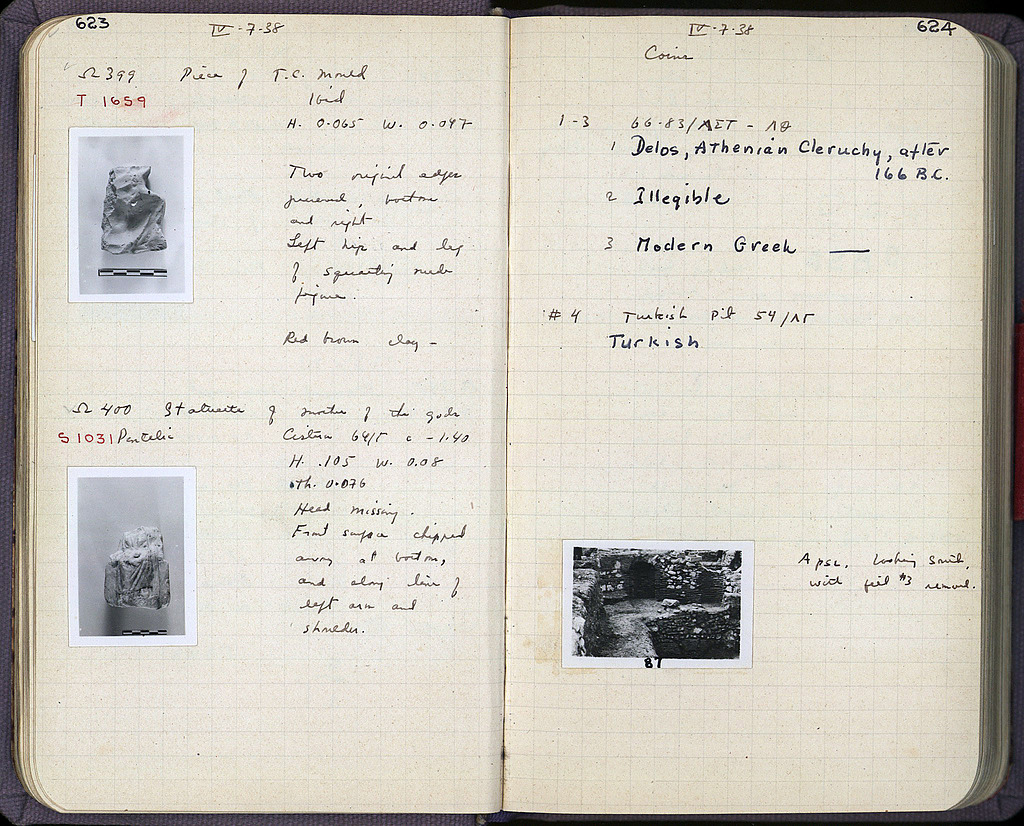 623
IV-7-38
Ω 399 Piece of T.C. Mould
T 1659 Ibid
H. 0.065 W. 0.047
Two original edges
preserved, bottom
and right
Left hip and leg
of squatting nude
figure.
Red brown clay -
Ω 400 Statuette of mother of the gods
S 1031 Pentelic Cistern 64/Γ c -1.40
H. .105 W. 0.08
th. 0.076
Head missing.
Front surface chipped
away at bottom,
and along line of
left arm and
shoulder.
624
IV-7-38
Coins
1-3 66-83/ΛΣΤ - ΛΘ
1 Delos, Athenian Cleruchy, after
166 B.C.
2 Illegible
3 Modern Greek —
#4 Turkish Pit 54/ΛΓ
Turkish
Apse, looking south,
with #3 removed.
87